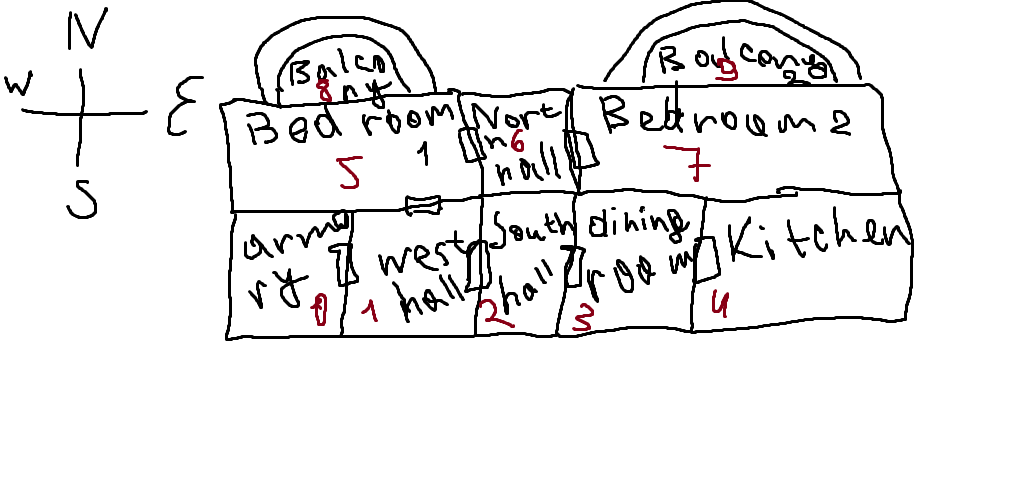 N
W
E
S
Balco
ny
8
Balcony
2
9
Bedroom
1
5
Nort
h
hall
6
Bedroom 2
7
armo
ry
0
west
hall
1
South
hall
2
dining
room
3
Kitchen
4